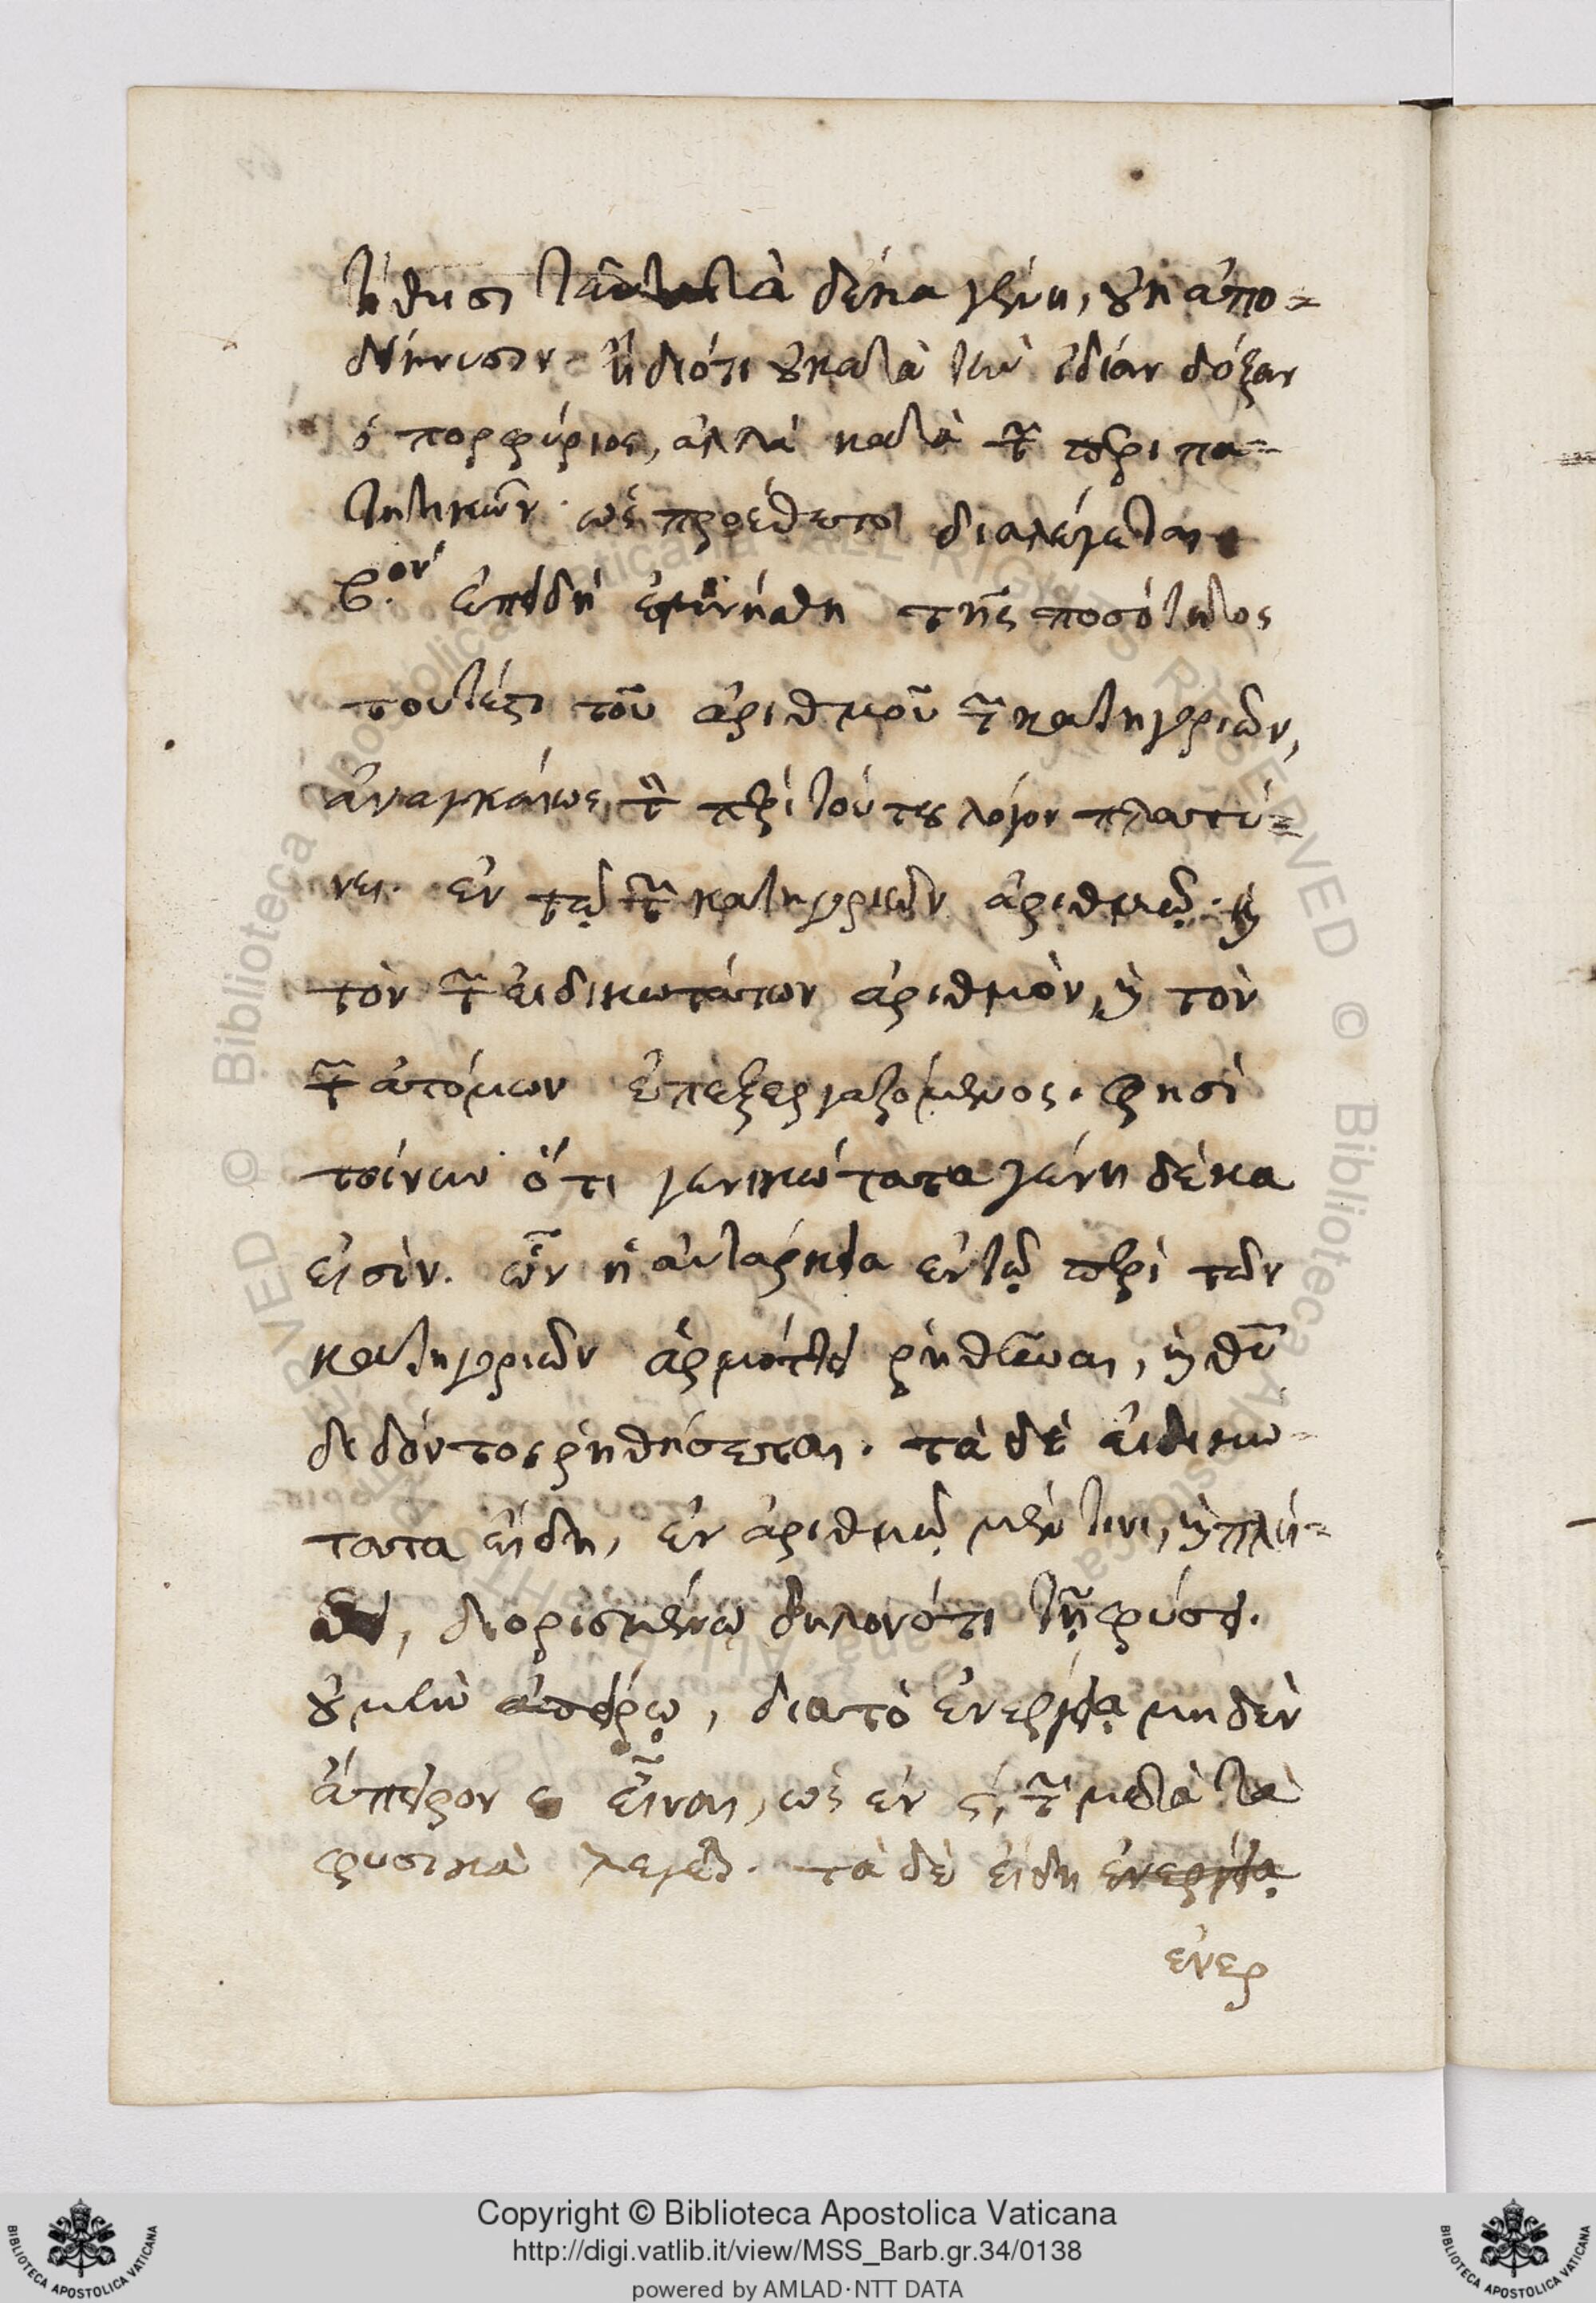 τίθησι ταῦτα τὰ δέκα γένη, οὐκ ἀπο=
δείκνυσιν. ἢ διότι οὐ κατὰ τὴν ἰδίαν δόξαν
ὁ πορφύριος, ἀλλὰ κατὰ τῶν περιπα=
τητικῶν ὡς προέθετο διαλέγεται.
β.ον ἐπειδὴ ἐμνήσθη τῆς ποσότητος
τουτέστι τοῦ ἀριθμοῦ τῶν κατηγοριῶν,
ἀναγκαίως τὸν περὶ τούτου λόγον πλατύ=
νει. ἐν τῷ τῶν κατηγοριῶν ἀριθμῷ. καὶ
τὸν τῶν εἰδικωτάτων ἀριθμὸν, καὶ τὸν
τῶν ἀτόμων ἐπεξεργαζόμενος. φησὶ
τοίνυν ὅτι γενικώτατα γένη δέκα
εἰσίν. ὧν ἡ αὐτάρκεια ἐν τῷ περὶ τῶν
κατηγοριῶν ἁρμόττει ῥηθῆναι, καὶ θεοῦ
διδόντος ῥηθήσεται. τὰ δὲ εἰδικώ-
τατα εἴδη, ἐν ἀριθμῷ μὲν τινι, καὶ πλή=
διορισμένῳ δηλονότι τῇ φύσει.
οὐ μὴν ἀπείρῳ, διὰ τὸ ἐνεργείᾳ μηδὲν
ἄπειρον εἶναι, ὡς ἐν ϛ, τῶν μετὰ τὰ
φυσικὰ λέγει. τὰ δὲ εἴδη ἐνεργείᾳ
ἐνερ
Copyright © Biblioteca Apostolica Vaticana
http://digi.vatlib.it/view/MSS_Barb.gr.34/0138
powered by AMLAD·NTT DATA